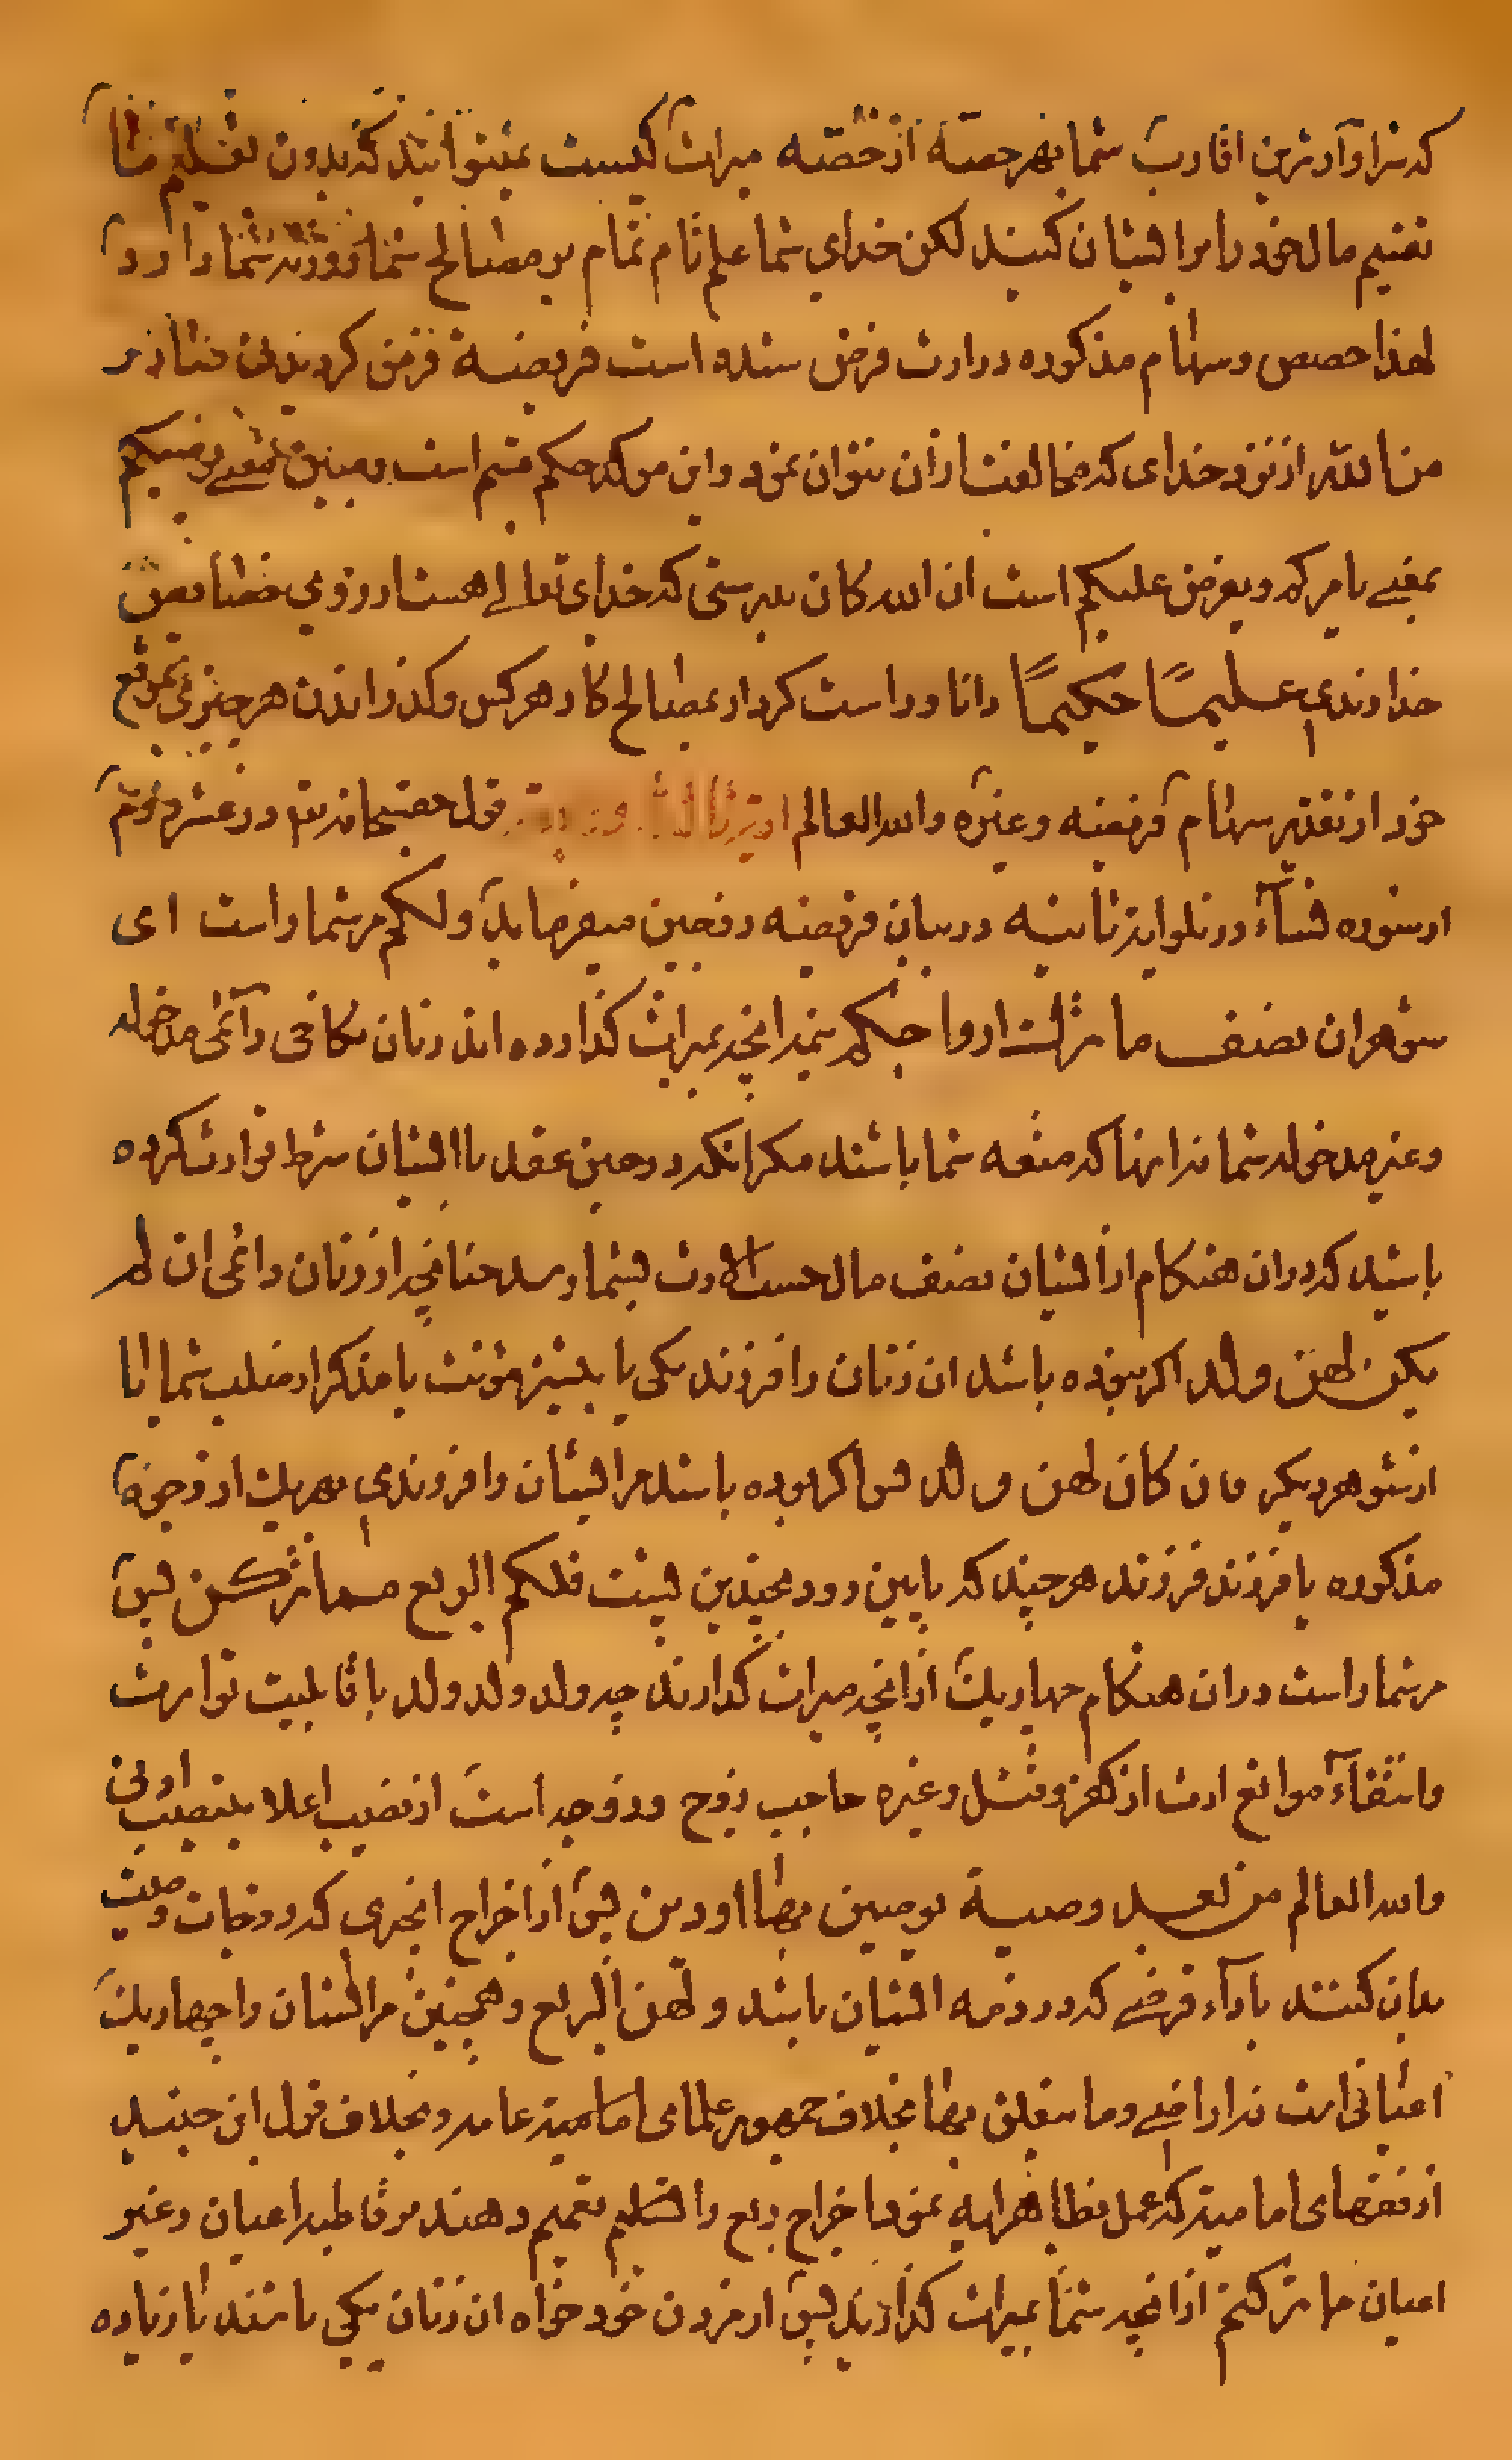 که سزاوارترین اقارب شما بهر حصهٔ از حصّه میراث کیست نمیتوانید که بدون تعلیم ما
تقسیم مال خود را بر ایشان کنید لکن خدای شما علم تام تمام بر مصالح شما و ورثه شما دارد
لهذا حصص و سهام مذکوره در ارث فرض شده است فریضة فرض کردیدنی
من الله از نزد خدای که مخالفت از ان نتوان نمود و این موکد حکم قسم است یوصیکم
بمعنی یامرکم و یفرض علیکم است ان الله کان بدرستی که خدای تعالی هست از روی
خداوندی علیمًا حکیمًا دانا و راست کردار بمصالح کار هر کس و گذرانیدن هر چیزی بموقع
خود از تقدیر سهام فریضه و غیره والله العالم قول حقسبحانه در عشر دوّم
از سوره نساء در تلو ایه ثانیه در بیان فریضه زوجین میفرماید ولکم مر شما راست ای
شوهران نصف ما ترك ازواجکم نیمهٔ انچه بمیراث گذارده اند زنان نکاحی دائمی مدخوله
و غیر مدخوله شما نه اینها که متعه شما باشند مگر انکه در حین عقد با ایشان شرط توارث کرده
باشید که در ان هنگام از ایشان نصف مال حسب الارث بشما رسد چنانچه از زنان دائمی ان لم
یکن لهن ولد اگر نبوده باشد ان زنان را فرزند یکی یا بیشتر مؤنث یا مذکر از صلب شما یا
از شوهر دیگر فان کان لهن ولد پس اگر بوده باشد مر ایشان را فرزندی بهریك از وجوه
مذکوره یا فرزند فرزند هر چند که پایین رود بچندین پشت فلکم الربع مما ترکن پس
مر شما راست در ان هنگام چهاریك از انچه میراث گذارند چه ولد و ولد ولد با قابلیت توارث
وانتفاء موانع ارث از کفر و قتل و غیره حاجب زوج و زوجه است از نصیب اعلا بنصیب ادنی
والله العالم من بعد وصیة یوصین بها او دین پس از اخراج انچیزی که زوجات وصیت
بدان کنند یا اداء قرضی که در ذمه ایشان باشد و لهن الربع و همچنین مر ایشان را چهاریك
اعیانی است نه اراضی و ما یتعلق بها بخلاف جمهور علمای امامیه عامه و بخلاف قول ابن جنید
از فقهای امامیه که عمل بظاهر ایه نموده اخراج ربع را تعمیم دهند بر قاطبه اعیان و غیر
اعیان مما ترکتم از انچه شما بمیراث گذارید پس از مردن خود خواه ان زنان یکی باشند یا زیاده